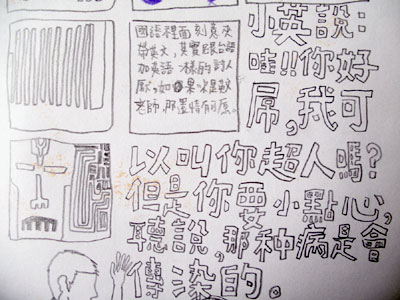 國語裡面刻意夾
帶英文,其實跟台語
加英語一樣的討人
厭,如果是
老師,那還情有
小英說:
哇!!你好
屌,我可
以叫你超人嗎?
但是你要小點心,
聽說,那种病是會
傳染的。